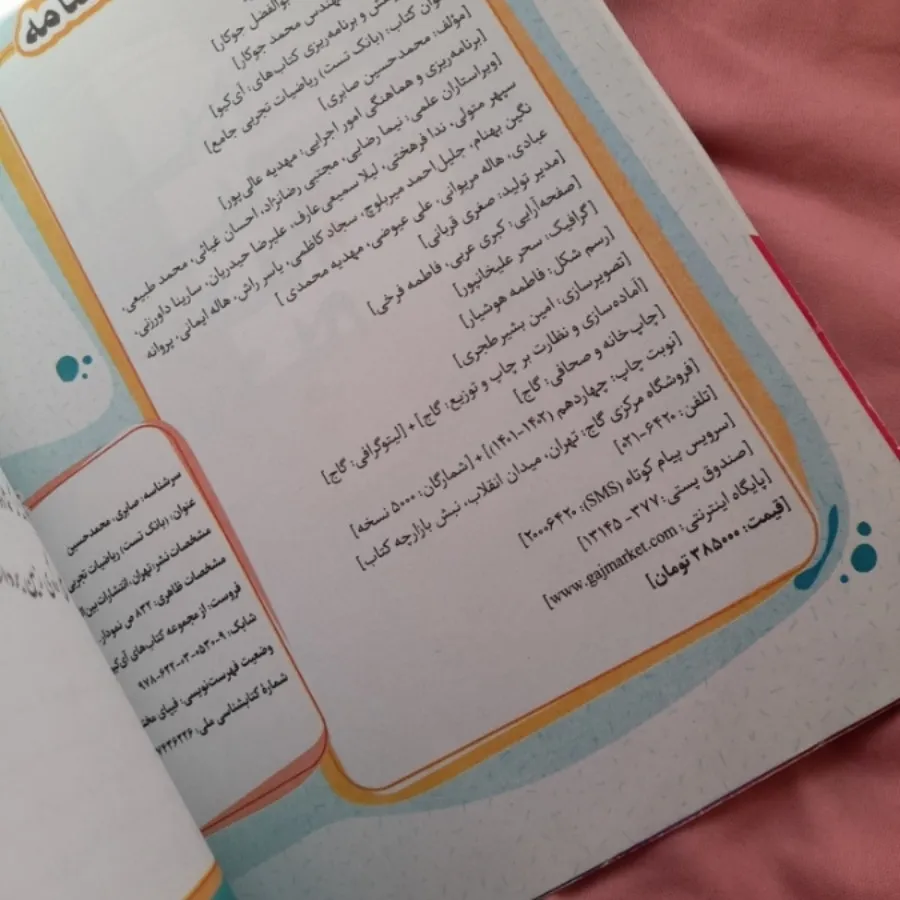 بوالفضل جوکار]
هندس محمد جوکار]
ش و برنامه‌ریزی کتاب‌های: آی‌کیو]
وان کتاب: (بانک تست) ریاضیات تجربی جامع]
[مؤلف: محمدحسین صابری]
[برنامه‌ریزی و هماهنگی امور اجرایی: مهدیه عالی‌پور]
[ویراستاران علمی: نیما رضایی، مجتبی رضانژاد، احسان غیاثی، محمد طبیعی،
سپهر متولی، ندا فرهختی، لیلا سمیعی‌عارف، علیرضا حیدریان، سارینا داورزنی،
نگین بهنام، جلیل‌احمد میربلوچ، سجاد کاظمی، یاسر راش، هاله ایمانی، پروانه
عبادی، هاله مریوانی، علی عیوضی، مهدیه محمدی]
[مدیر تولید: صغری قربانی]
[صفحه‌آرایی: کبری عربی، فاطمه فرخی]
[گرافیک: سحر علیخانپور]
[رسم شکل: فاطمه هوشیار]
[تصویرسازی: امین بشیرطجری]
[آماده‌سازی و نظارت بر چاپ و توزیع: گاج] + [لیتوگرافی: گاج]
[چاپ‌خانه و صحافی: گاج]
[نوبت چاپ: چهاردهم (۱۴۰۲-۱۴۰۱)] + [شمارگان: ۵۰۰۰ نسخه]
[فروشگاه مرکزی گاج: تهران، میدان انقلاب، نبش بازارچه کتاب]
[تلفن: ۶۴۲۰-۰۲۱]
[سرویس پیام کوتاه (SMS): ۲۰۰۰۶۴۲۰]
[صندوق پستی: ۳۷۷-۱۳۱۴۵]
[پایگاه اینترنتی: www.gajmarket.com]
[قیمت: ۳۸۵۰۰۰ تومان]
سرشناسه: صابری، محمدحسین
عنوان: (بانک تست) ریاضیات تجربی
مشخصات نشر: تهران، انتشارات بین‌ال
مشخصات ظاهری: ۸۳۲ ص نمودار.
فروست: از مجموعه کتاب‌های آی‌کیو
شابک: ۹-۰۵۳۰-۰۳-۶۲۲-۹۷۸
وضعیت فهرست‌نویسی: فیپای مخت
شمارهٔ کتابشناسی ملی: